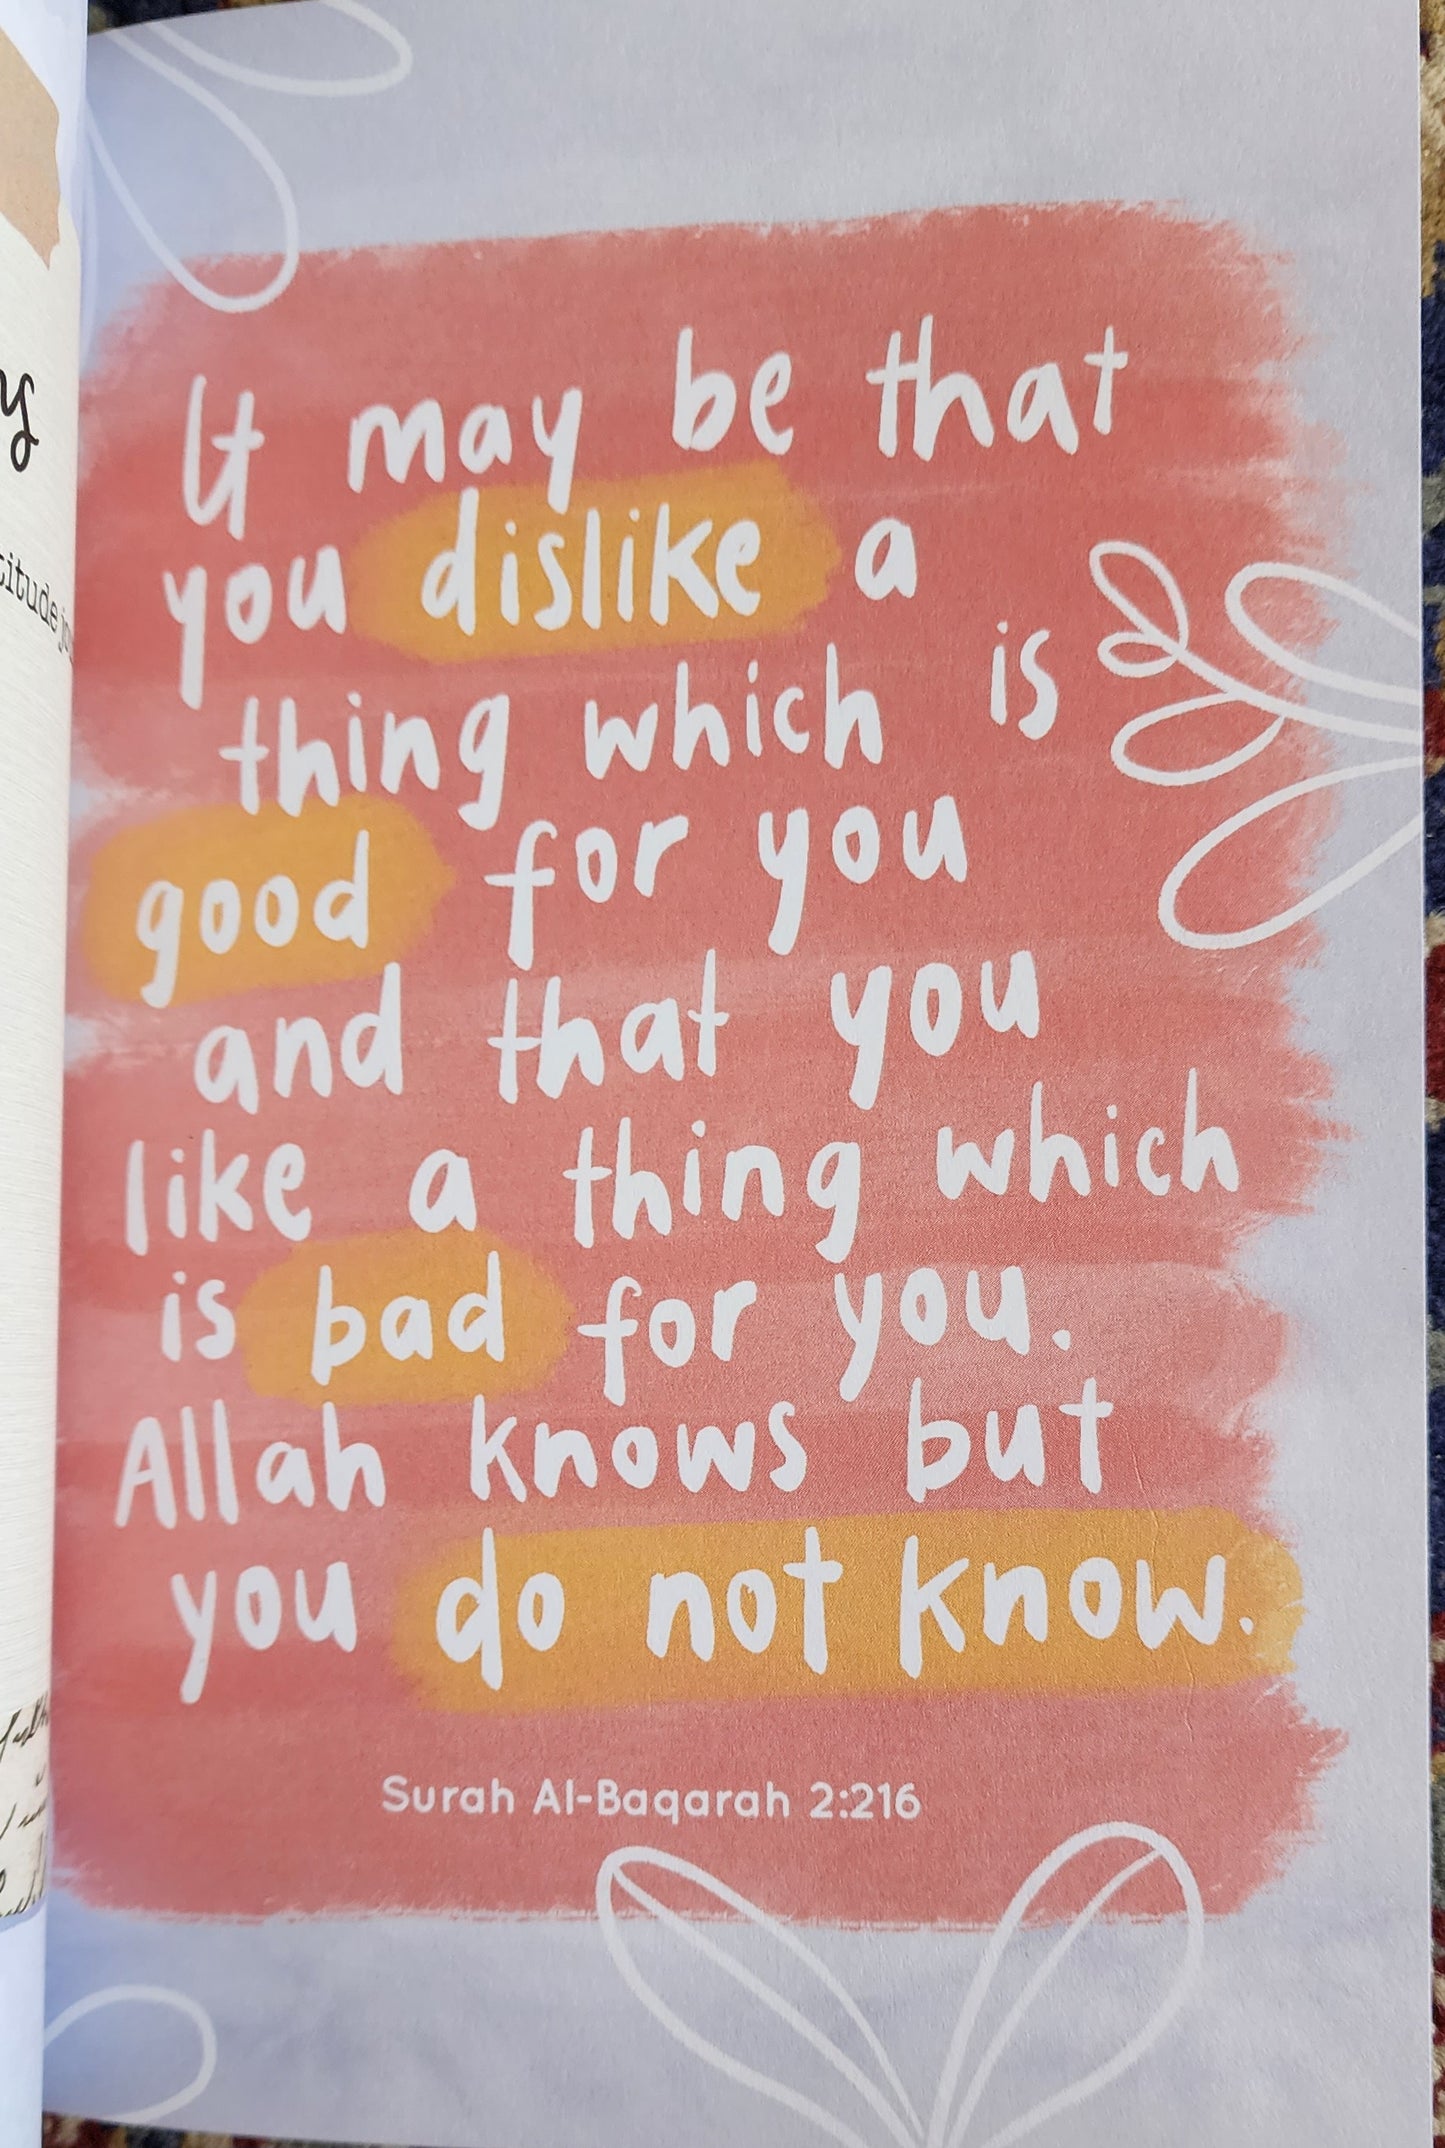 It may be that
you dislike a
thing which is
good for you
and that you
like a thing which
is bad for you.
Allah knows but
you do not know.
Surah Al-Baqarah 2:216